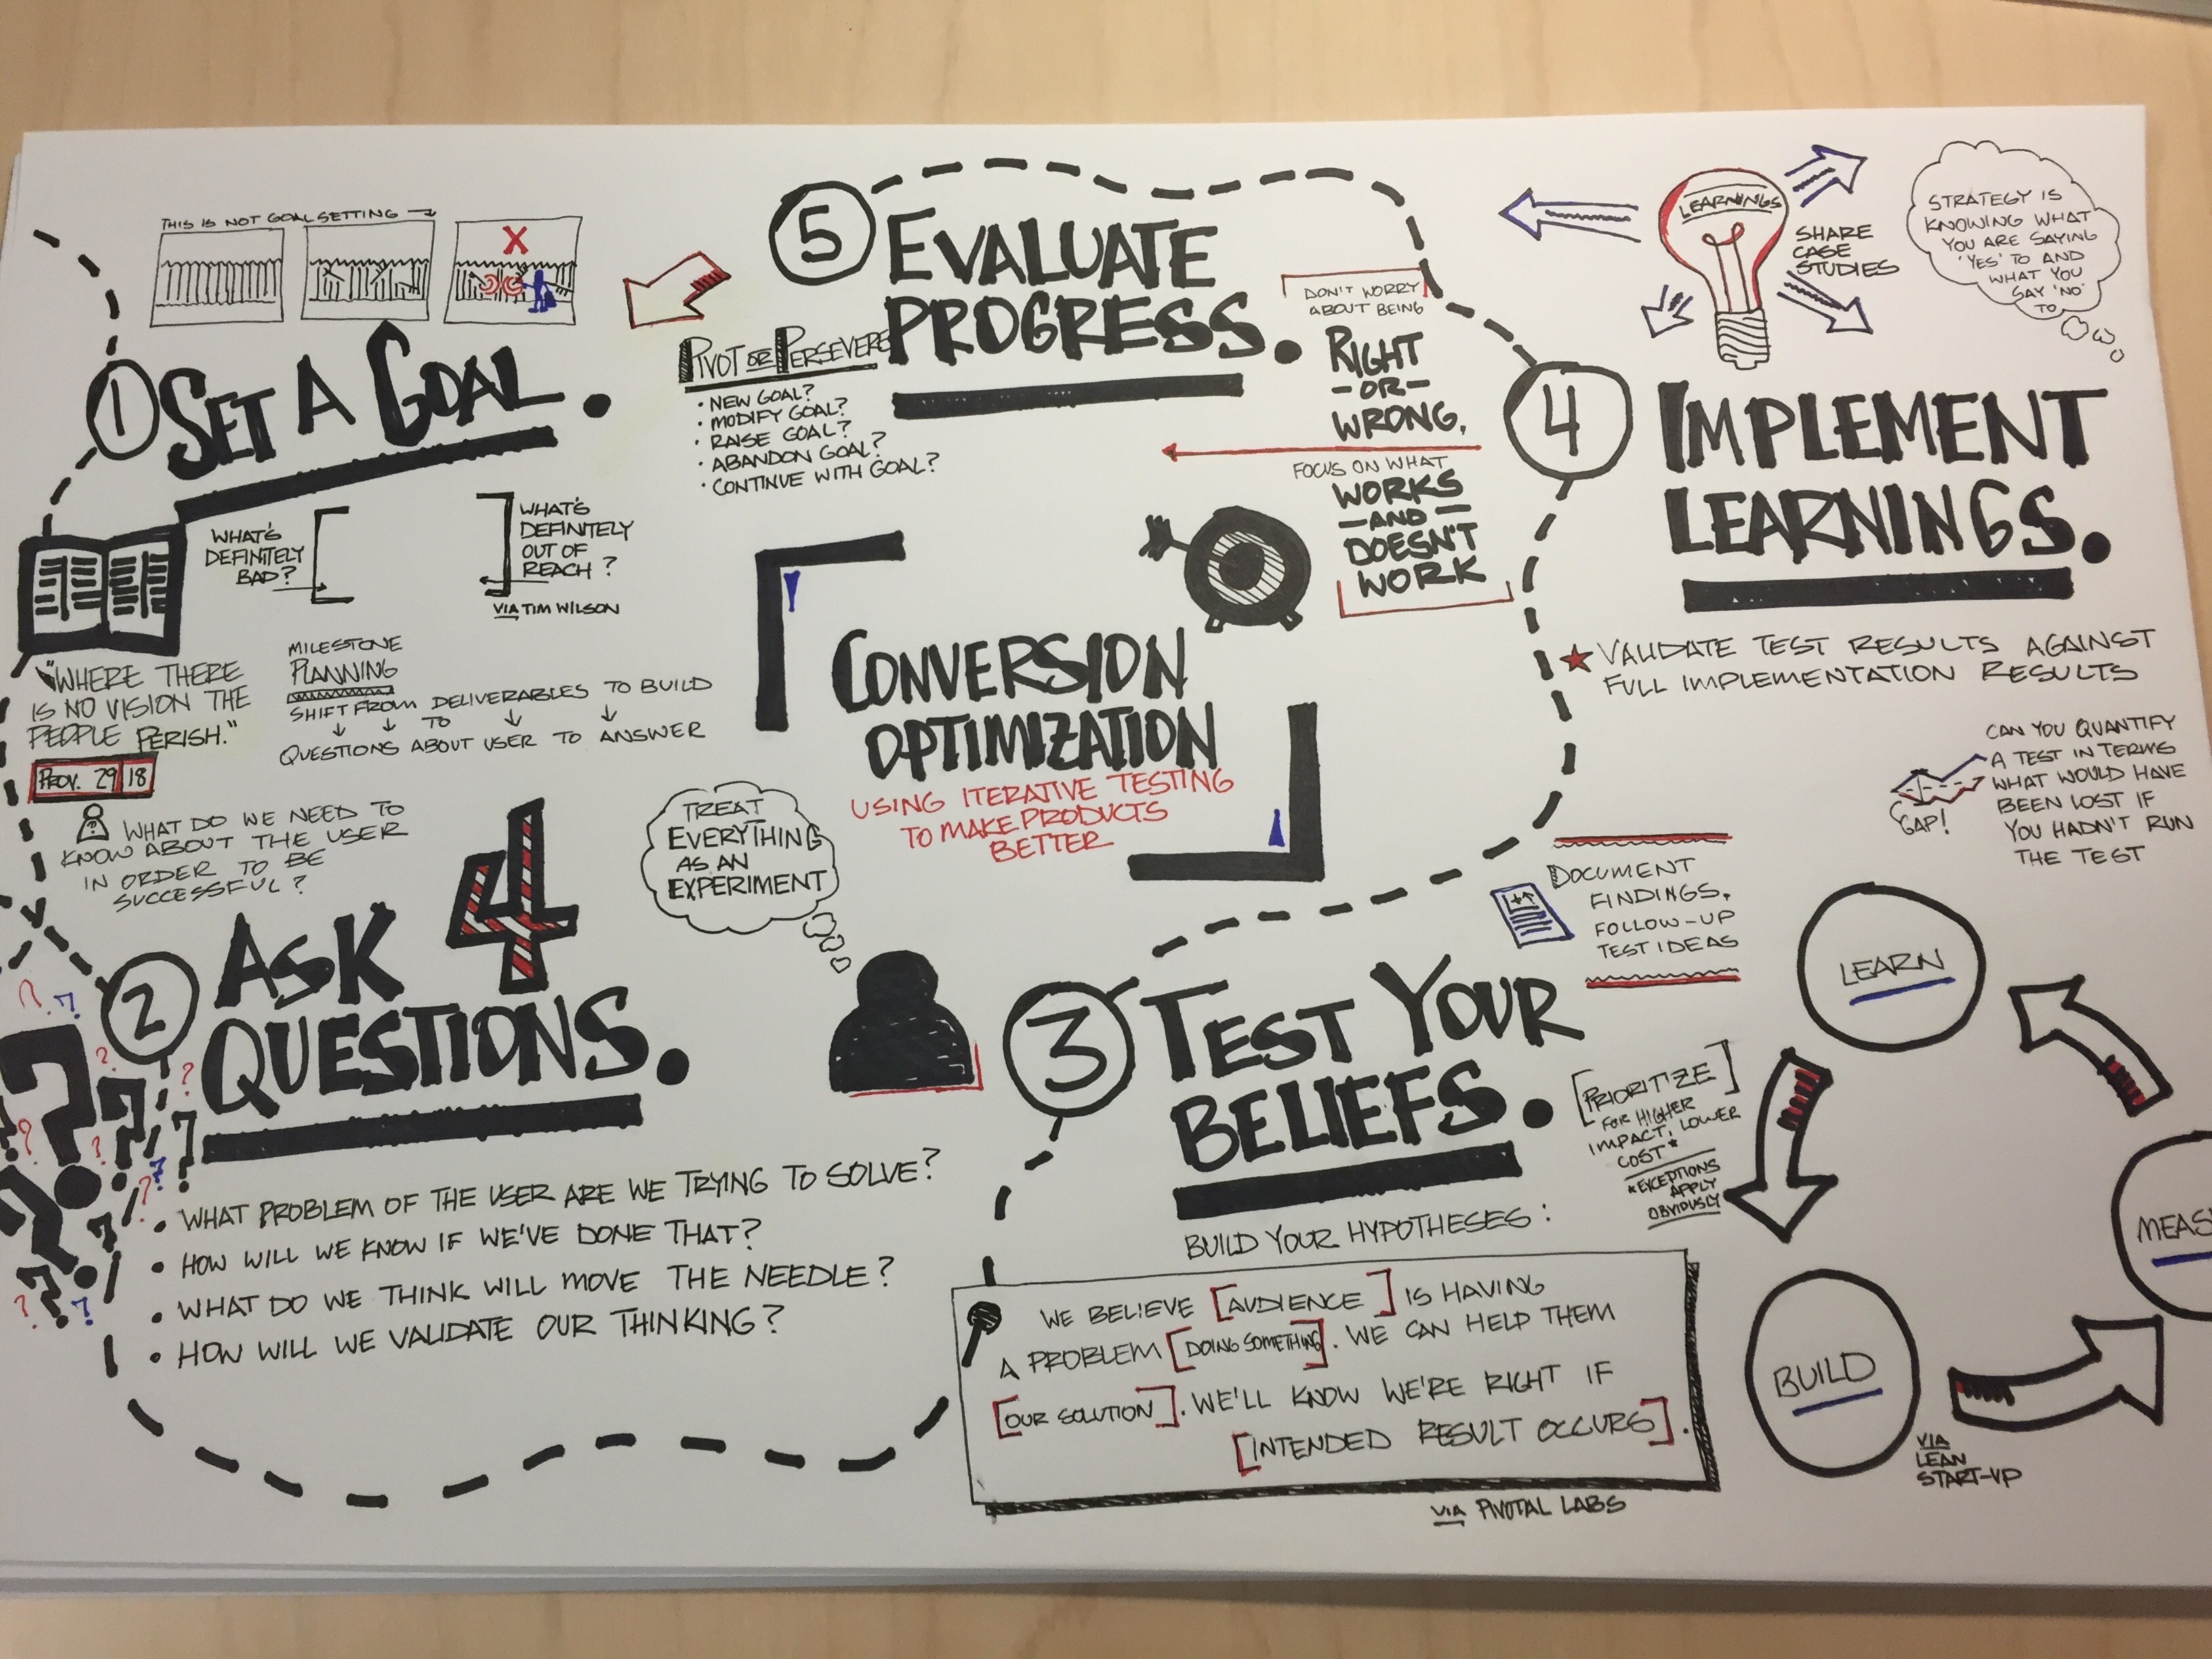 THIS IS NOT GOAL SETTING
X
1
SET A GOAL.
WHAT'S
DEFINITELY
BAD?
WHAT'S
DEFINITELY
OUT OF
REACH?
VIA TIM WILSON
"WHERE THERE
IS NO VISION THE
PEOPLE PERISH."
PROV. 29 18
MILESTONE
PLANNING
SHIFT FROM DELIVERABLES TO BUILD
TO
QUESTIONS ABOUT USER TO ANSWER
?
WHAT DO WE NEED TO
KNOW ABOUT THE USER
IN ORDER TO BE
SUCCESSFUL?
2
ASK 4
QUESTIONS.
• WHAT PROBLEM OF THE USER ARE WE TRYING TO SOLVE?
• HOW WILL WE KNOW IF WE'VE DONE THAT?
• WHAT DO WE THINK WILL MOVE THE NEEDLE?
• HOW WILL WE VALIDATE OUR THINKING?
TREAT
EVERYTHING
AS AN
EXPERIMENT
CONVERSION
OPTIMIZATION
USING ITERATIVE TESTING
TO MAKE PRODUCTS
BETTER
3
TEST YOUR
BELIEFS.
[PRIORITIZE]
FOR HIGHER
IMPACT, LOWER
COST*
*EXCEPTIONS
APPLY
OBVIOUSLY
BUILD YOUR HYPOTHESES:
WE BELIEVE [AUDIENCE] IS HAVING
A PROBLEM [DOING SOMETHING]. WE CAN HELP THEM
[OUR SOLUTION]. WE'LL KNOW WE'RE RIGHT IF
[INTENDED RESULT OCCURS].
VIA PIVOTAL LABS
LEARN
BUILD
MEAS
VIA
LEAN
START-UP
4
IMPLEMENT
LEARNINGS.
LEARNINGS
SHARE
CASE
STUDIES
STRATEGY IS
KNOWING WHAT
YOU ARE SAYING
'YES' TO AND
WHAT YOU
SAY 'NO'
TO
VALIDATE TEST RESULTS AGAINST
FULL IMPLEMENTATION RESULTS
CAN YOU QUANTIFY
A TEST IN TERMS
WHAT WOULD HAVE
BEEN LOST IF
YOU HADN'T RUN
THE TEST
GAP!
DOCUMENT
FINDINGS,
FOLLOW-UP
TEST IDEAS
5
EVALUATE
PROGRESS.
PIVOT OR PERSEVERE
• NEW GOAL?
• MODIFY GOAL?
• RAISE GOAL?
• ABANDON GOAL?
• CONTINUE WITH GOAL?
DON'T WORRY
ABOUT BEING
RIGHT
-OR-
WRONG,
FOCUS ON WHAT
WORKS
-AND-
DOESN'T
WORK